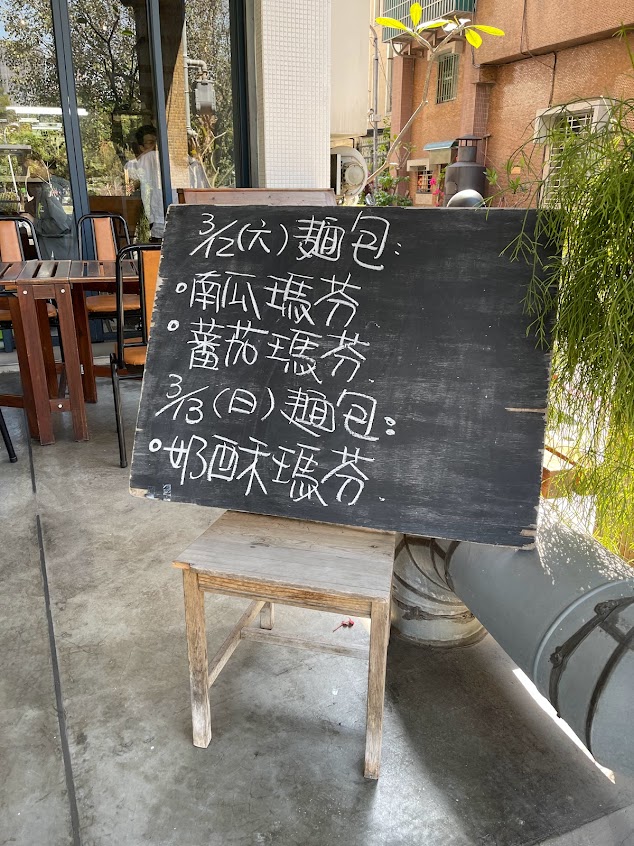 3/12(六)麵包:
南瓜瑪芬
蕃茄瑪芬.
3/13(日)麵包:
奶酥瑪芬.